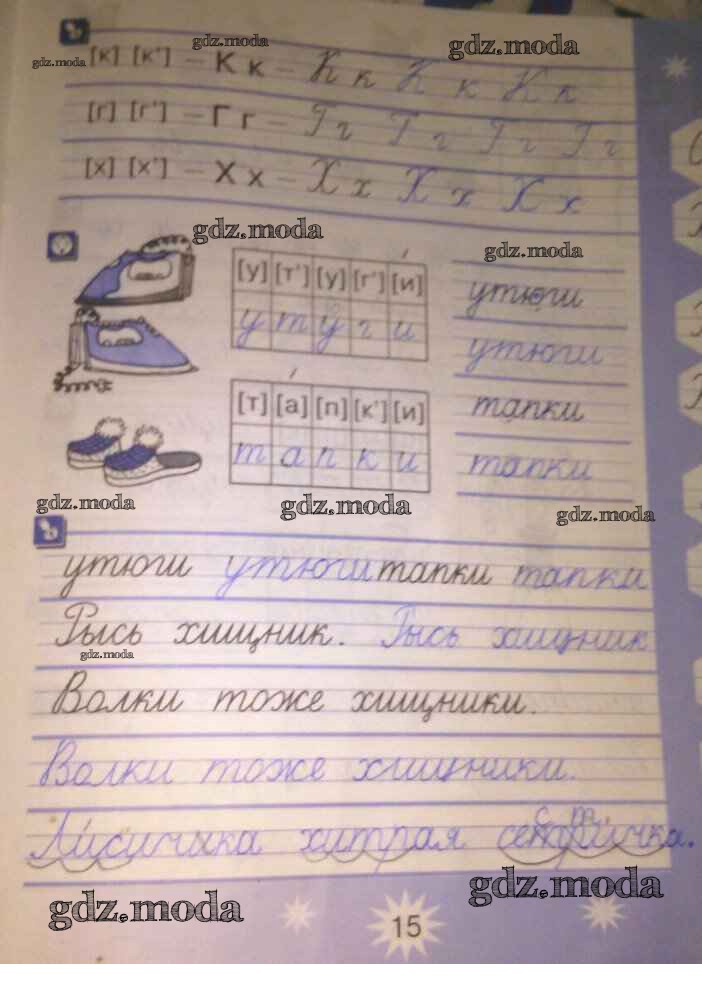 gdz.moda
gdz.moda
gdz.moda
[к] [к'] – К к – К к К к К к
[г] [г'] – Г г – Г г Г г Г г Г г
[х] [х'] – Х х – Х х Х х Х х
gdz.moda
gdz.moda
[у] [т'] [у] [г'] [и]
у т ӱ г и
утюги
утюги
[т] [а] [п] [к'] [и]
т а п к и
тапки
тапки
gdz.moda
gdz.moda
gdz.moda
утюги утюги тапки тапки
Рысь хищник. Рысь хищник
gdz.moda
Волки тоже хищники.
Волки тоже хищники.
хитрая
gdz.moda
gdz.moda
15